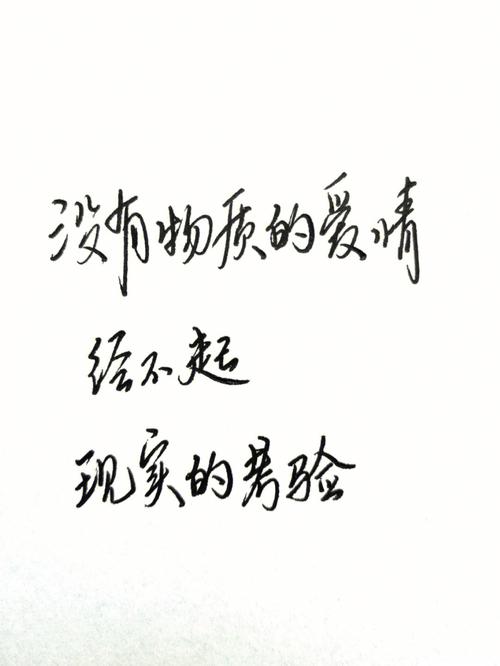 没有物质的爱情
经不起
现实的考验